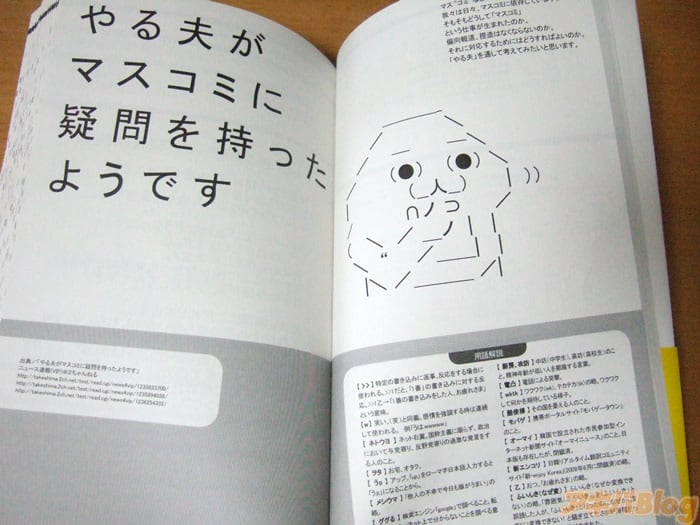 やる夫が
マスコミに
疑問を持った
ようです
出典／「やる夫がマスコミに疑問を持ったようです」
ニュース速報(VIP)＠2ちゃんねる
我々は日々、マスコミに依存しています
そもそもどうして「マスコミ」
という仕事が生まれたのか。
偏向報道、捏造はなくならないのか。
それに対応するためにはどうすればよいのか。
「やる夫」を通して考えてみたいと思います。
用語解説
【>>】特定の書き込みに返事、反応をする場合に
使われる。>>1乙→「1番」の書き込みに対する反
応。「1番の書き込みをした人、お疲れさま」
という意味。
【w】笑い、(笑)と同義。感情を強調する時は連続
して使われる。 例「うはwwwww」
【ネトウヨ】ネット右翼。国粋主義に限らず、政治
において与党寄り、反野党寄りの過激な発言をす
る人のこと。
【ヲタ】お宅、オタク。
【うp】アップ。「up」をローマ字日本語入力すると
「うp」になることから。
【メシウマ】「他人の不幸で今日も飯がうまい」の
略。
【ググる】検索エンジン「google」で調べること。転
じて、ネット上で分からないことを調べる意
【厨房、攻防】中坊(中学生)、高坊(高校生)のこ
と。精神年齢が低い人を揶揄する言葉。
【電凸】電話による突撃。
【wktk】ワクワク(wk)、テカテカ(tk)の略。ワクワク
して何かを期待している様子。
【酷使様】その国を憂える人のこと。
【モバゲ】携帯ポータルサイト「モバゲータウン」
のこと。
【オーマイ】韓国で設立された市民参加型イン
ターネット新聞サイト「オーマイニュース」のこと。日
本版も存在したが、閉鎖済。
【新エンコリ】日韓リアルタイム翻訳コミュニティ
サイト「新・enjoy Korea」(2009年6月に閉鎖済)の略。
【乙】おつ。「お疲れさま」の略。
アキバBlog